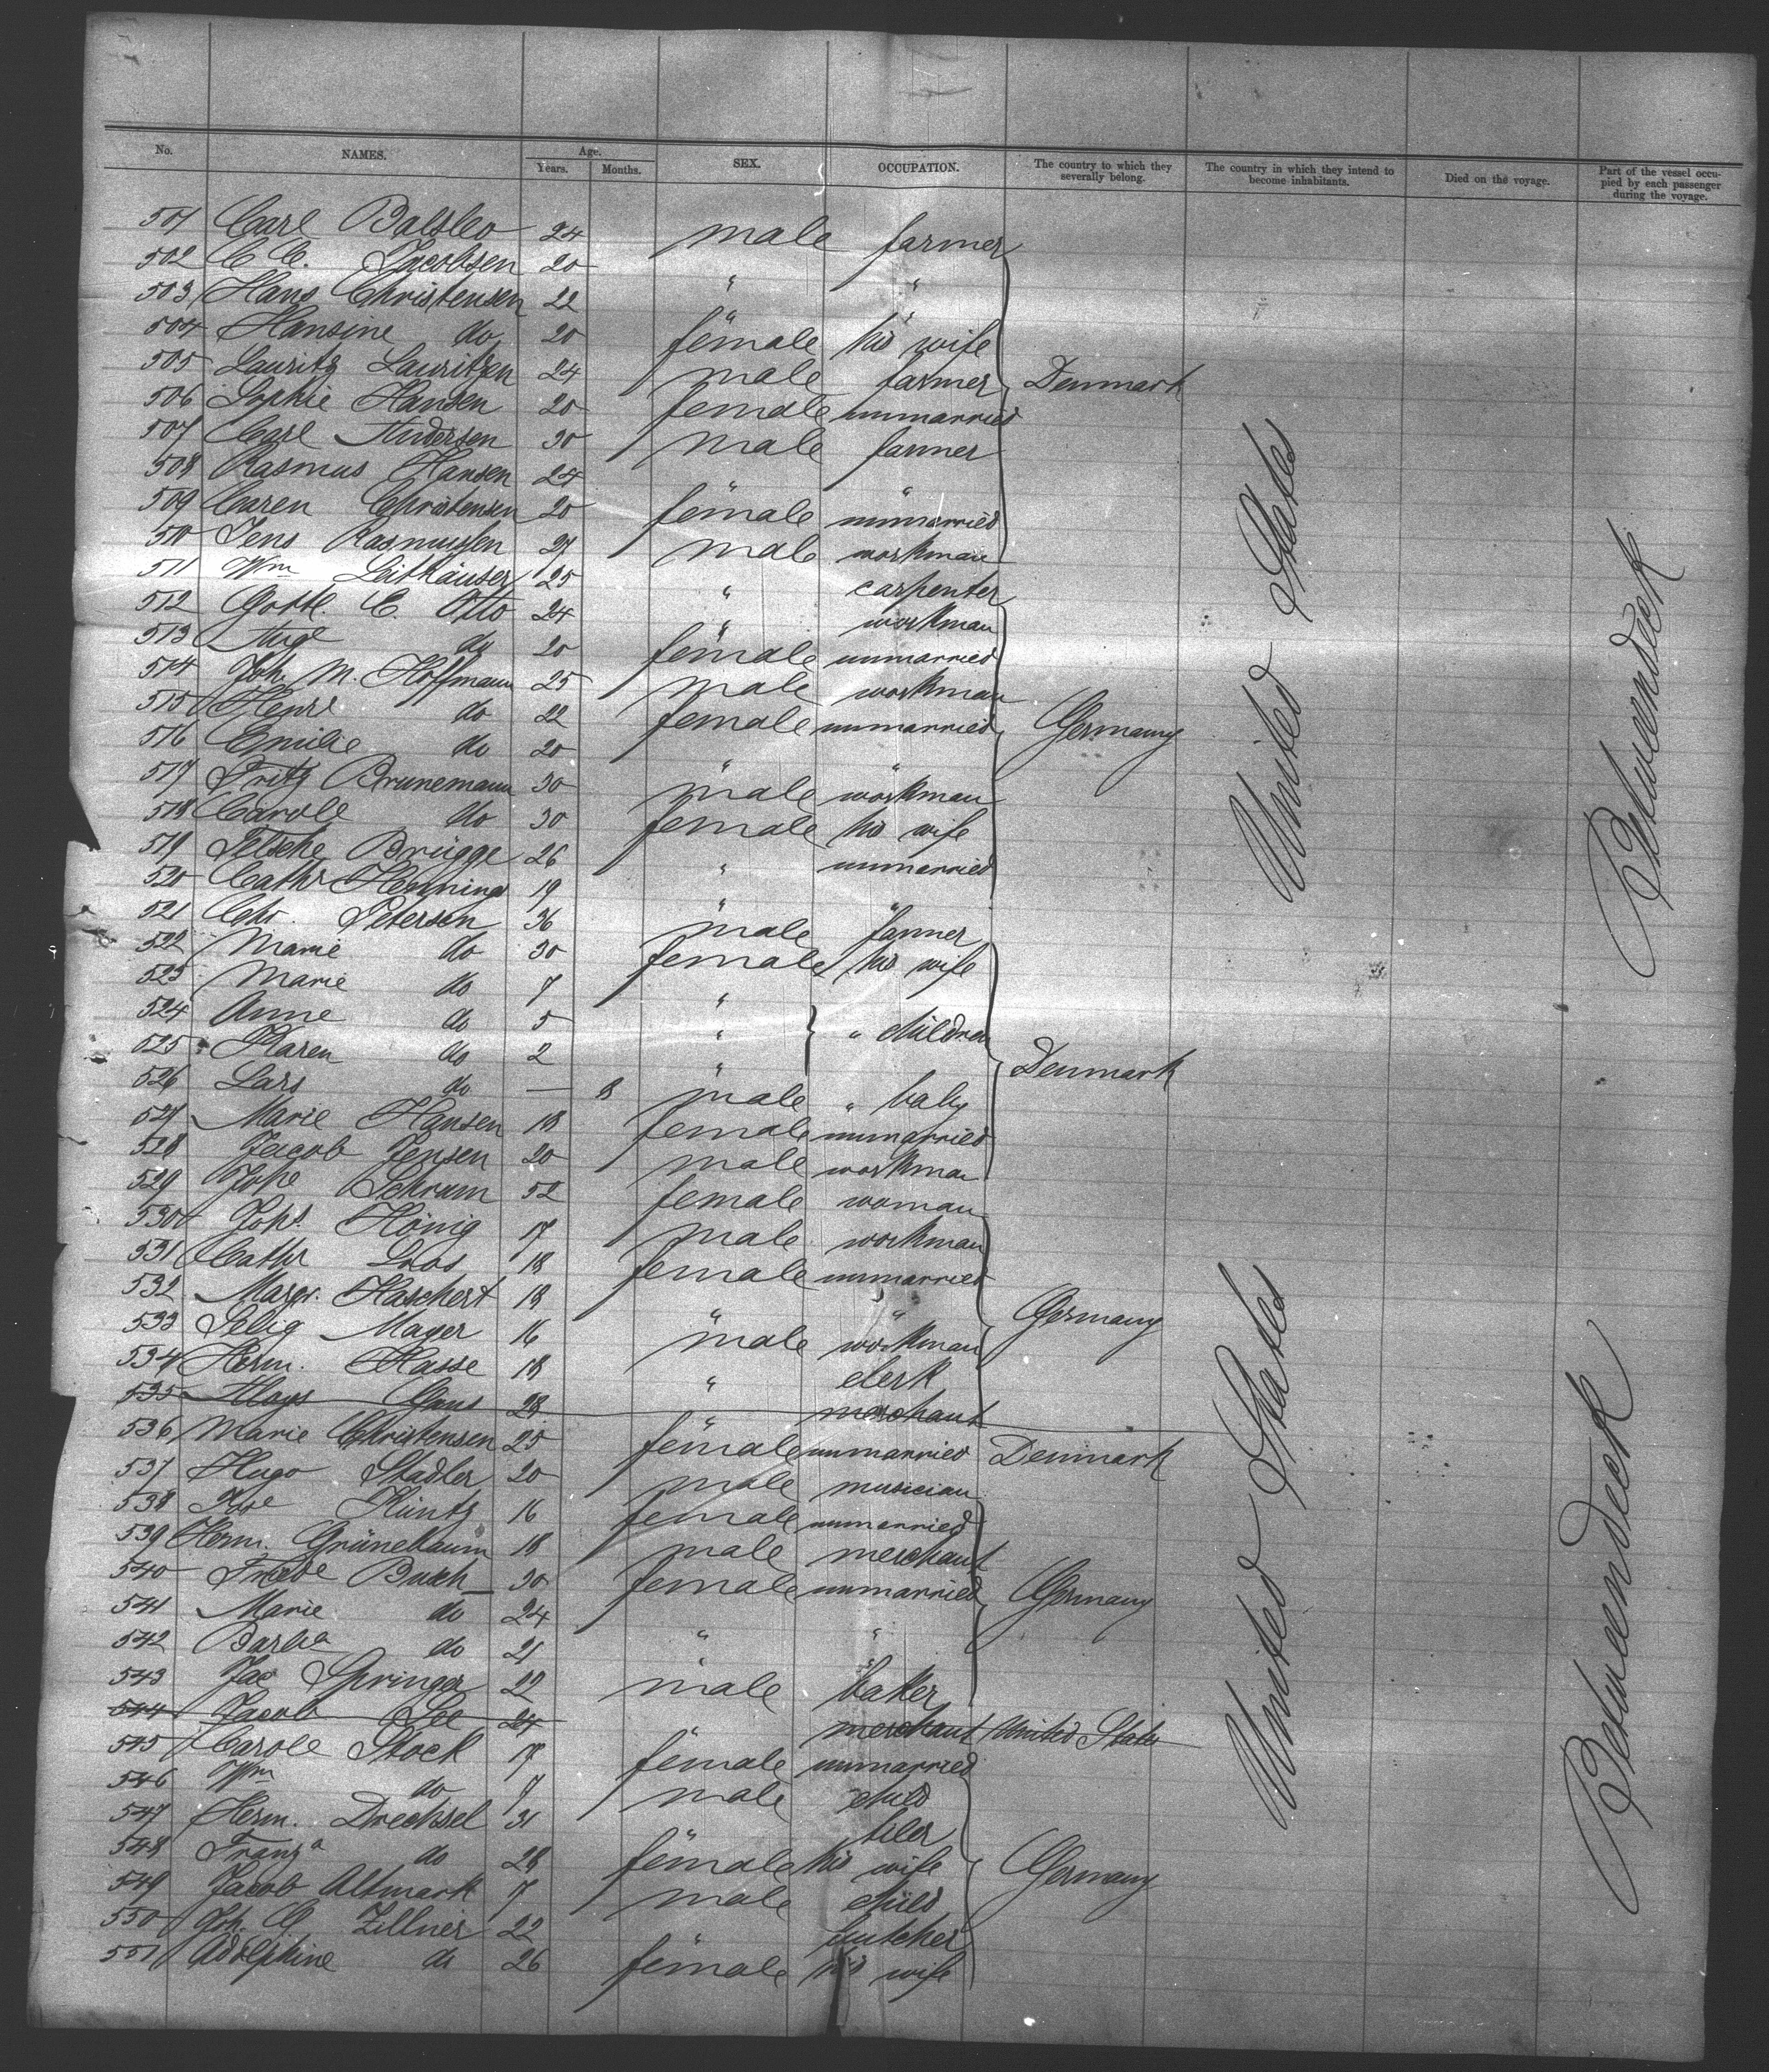 No. NAMES. Age. Years. Months. SEX. OCCUPATION. The country to which they severally belong. The country in which they intend to become inhabitants. Died on the voyage. Part of the vessel occupied by each passenger during the voyage.
501 Carl Balslev 24 male farmer
502 C. C. Jacobsen 20 " "
503 Hans Christensen 22 " "
504 Hansine do 20 female his wife
505 Lauritz Lauritzen 24 male farmer Denmark
506 Sophie Hansen 20 female unmarried
507 Carl Andersen 30 male farmer
508 Rasmus Hansen 24 " "
509 Caren Christensen 20 female unmarried
510 Jens Rasmussen 27 male workman
511 Wm Leithäuser 25 " carpenter
512 Gottl. E. Otto 24 " workman
513 Auge do 20 female unmarried
514 Joh. M. Hoffmann 25 male workman
515 Henre do 22 female unmarried Germany
516 Emilie do 20 " "
517 Fritz Brunemann 30 male workman
518 Carole do 30 female his wife
519 Brügge 26 " unmarried
520 Cathr Henning 19 " "
521 Chr. Petersen 36 male farmer
522 Marie do 30 female his wife
523 Marie do 7 "
524 Anne do 5 " " children
525 Karen do 2 " Denmark
526 Lars do — 8 male " baby
527 Marie Hansen 18 female unmarried
528 Jacob Jensen 20 male workman
529 Johe Schram 52 female woman
530 Johs. König 17 male workman
531 Cathr Loos 18 female unmarried
532 Margr. Haschert 18 " "
533 Selig Mayer 16 male workman Germany
534 Herm. Hasse 18 " clerk
535 Gans 28 merchant
536 Marie Christensen 25 female unmarried Denmark
537 Hugo Stadler 20 male musician
538 Küntz 16 female unmarried
539 Herm. Grünebaum 18 male merchant
540 Friede Busch 30 female unmarried Germany
541 Marie do 24 " "
542 Barba do 21 " "
543 Jac Springer 22 male baker
544 Jacob See 24 merchant United States
545 Carole Stock 17 female unmarried
546 Wm do 7 male child
547 Herm. Drechsel 31 tiler
548 Franza do 28 female his wife Germany
549 Jacob Altmark 7 male child
550 Joh. G. Zillner 22 butcher
551 Adolphine do 26 female his wife
United States
United States
Betweendeck
Betweendeck